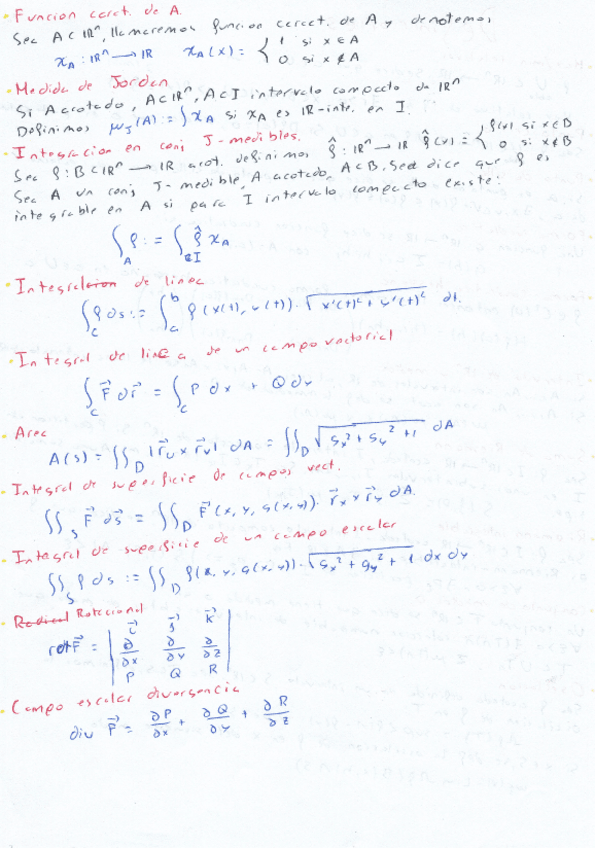 Funcion caract. de A.
Sea A ⊂ ℝⁿ, llamaremos funcion caract. de A y denotemos
χ_A : ℝⁿ → ℝ   χ_A(x) = { 1 si x ∈ A
0 si x ∉ A
Medida de Jordan
Si A acotado, A ⊂ ℝⁿ, A ⊂ I intervalo compacto de ℝⁿ
Definimos μ_J(A) := ∫ χ_A si χ_A es ℝ-inte. en I.
Integracion en conj J-medibles.
Sea f: B ⊂ ℝⁿ → ℝ acot. definimos f̂ : ℝⁿ → ℝ f̂(x) = { f(x) si x ∈ B
0 si x ∉ B
Sea A un conj J-medible, A acotado, A ⊂ B. Sea dice que f es
integrable en A si para I intervalo compacto existe:
∫_A f := ∫_I f̂ χ_A
Integral de linea
∫_C f ds := ∫_a^b f(x(t), y(t)) · √(x'(t)² + y'(t)²) dt.
Integral de linea de un campo vectorial
∫_C F⃗ dr⃗ = ∫_C P dx + Q dy
Area
A(s) = ∬_D |r⃗_u × r⃗_v| dA = ∬_D √(g_x² + g_y² + 1) dA
Integral de superficie de campos vect.
∬_S F⃗ ds⃗ = ∬_D F⃗(x, y, g(x,y)) · r⃗_x × r⃗_y dA.
Integral de superficie de un campo escalar
∬_S f ds := ∬_D f(x, y, g(x,y)) · √(g_x² + g_y² + 1) dx dy
Rotacional
rot F⃗ = | i⃗ j⃗ k⃗
∂/∂x ∂/∂y ∂/∂z
P Q R |
Campo escalar divergencia
div F⃗ = ∂P/∂x + ∂Q/∂y + ∂R/∂z